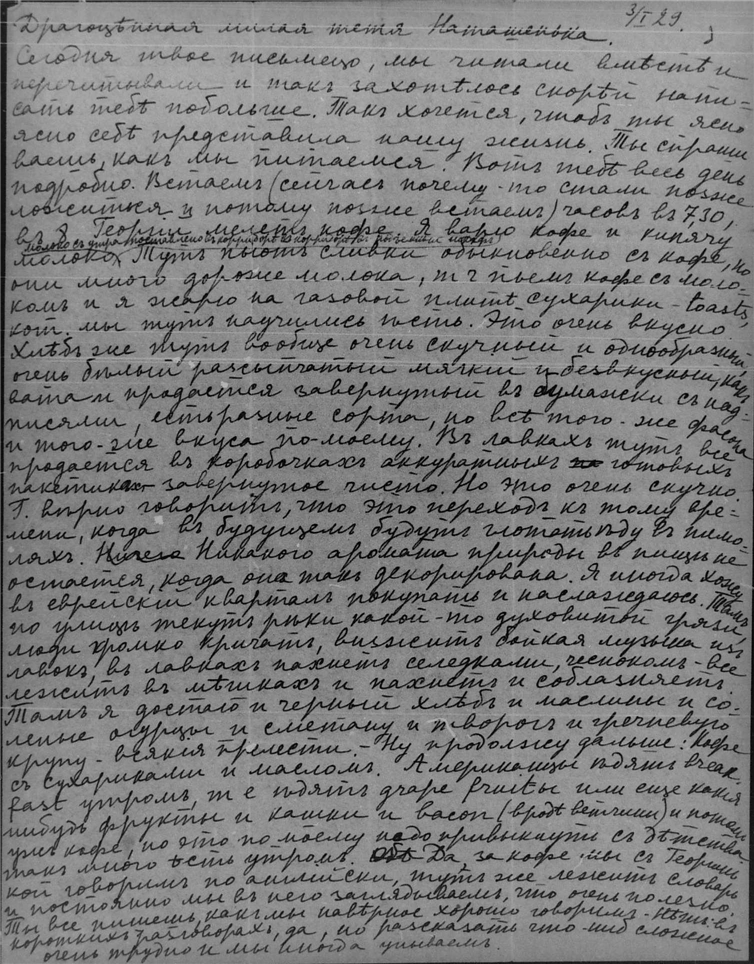 3/I 29.
Драгоцѣнная милая тетя Наташенька.
Сегодня твое письмецо, мы читали вмѣстѣ и
перечитывали и такъ захотѣлось скорѣй напи-
сать тебѣ побольше. Такъ хочется, чтобъ ты ясно
ясно себѣ представила нашу жизнь. Ты спраши
ваешь, какъ мы питаемся. Вотъ тебѣ весь день
подробно. Встаемъ (сейчасъ почему-то стали позже
ложиться и потому позже встаемъ) часовъ въ 7,30,
въ 8 Георгій мелетъ кофе. Я варю кофе и кипячу
молоко съ утра поставлено въ корридорѣ
молоко. Тутъ пьютъ сливки обыкновенно съ кофе, но
они много дороже молока, т ч пьемъ кофе съ моло-
комъ и я жарю на газовой плитѣ сухарики - toasts,
кот. мы тутъ научились ѣсть. Это очень вкусно
Хлѣбъ же тутъ вообще очень скучный и однообразный,
очень бѣлый разсыпчатый мягкій и безвкусный, какъ
вата и продается завернутый въ бумажки съ над-
писями, есть разные сорта, но всѣ того-же фасона
и того-же вкуса по-моему. Въ лавкахъ тутъ все
продается въ коробочкахъ аккуратныхъ готовыхъ
пакетикахъ завернутое чисто. Но это очень скучно.
Г. вѣрно говоритъ, что это переходъ къ тому вре-
мени, когда въ будущемъ будутъ глотать ѣду въ пилю-
ляхъ. Никакого аромата природы въ пищѣ не
остается, когда она такъ декорирована. Я иногда хожу
въ еврейскій кварталъ покупать и наслаждаюсь. Тамъ
по улицѣ текутъ рѣки какой-то духовитой грязи,
люди громко кричатъ, визжитъ бойкая музыка изъ
лавокъ, въ лавкахъ пахнетъ селедками, чеснокомъ - все
лежитъ въ мѣшкахъ и пахнетъ и соблазняетъ.
Тамъ я достаю и черный хлѣбъ и маслины и со-
леные огурцы и сметану и творогъ и гречневую
крупу - всякія прелести. - Ну продолжу дальше: Кофе
съ сухариками и масломъ. Американцы ѣдятъ break-
fast утромъ, т е ѣдятъ grape fruitы или еще какія
нибудь фрукты и кашки и bacon (вродѣ ветчины) и потомъ
ужъ кофе, но это по моему надо привыкнуть съ дѣтства
такъ много ѣсть утромъ. Да, за кофе мы съ Георгіи
кой говоримъ по англійски, тутъ же лежитъ словарь
и постоянно мы въ него заглядываемъ, что очень полезно.
Ты все пишешь, какъ мы навѣрное хорошо говоримъ - Нѣтъ: въ
короткихъ разговорахъ, да, но разсказать что-ниб сложное
очень трудно и мы иногда унываемъ.